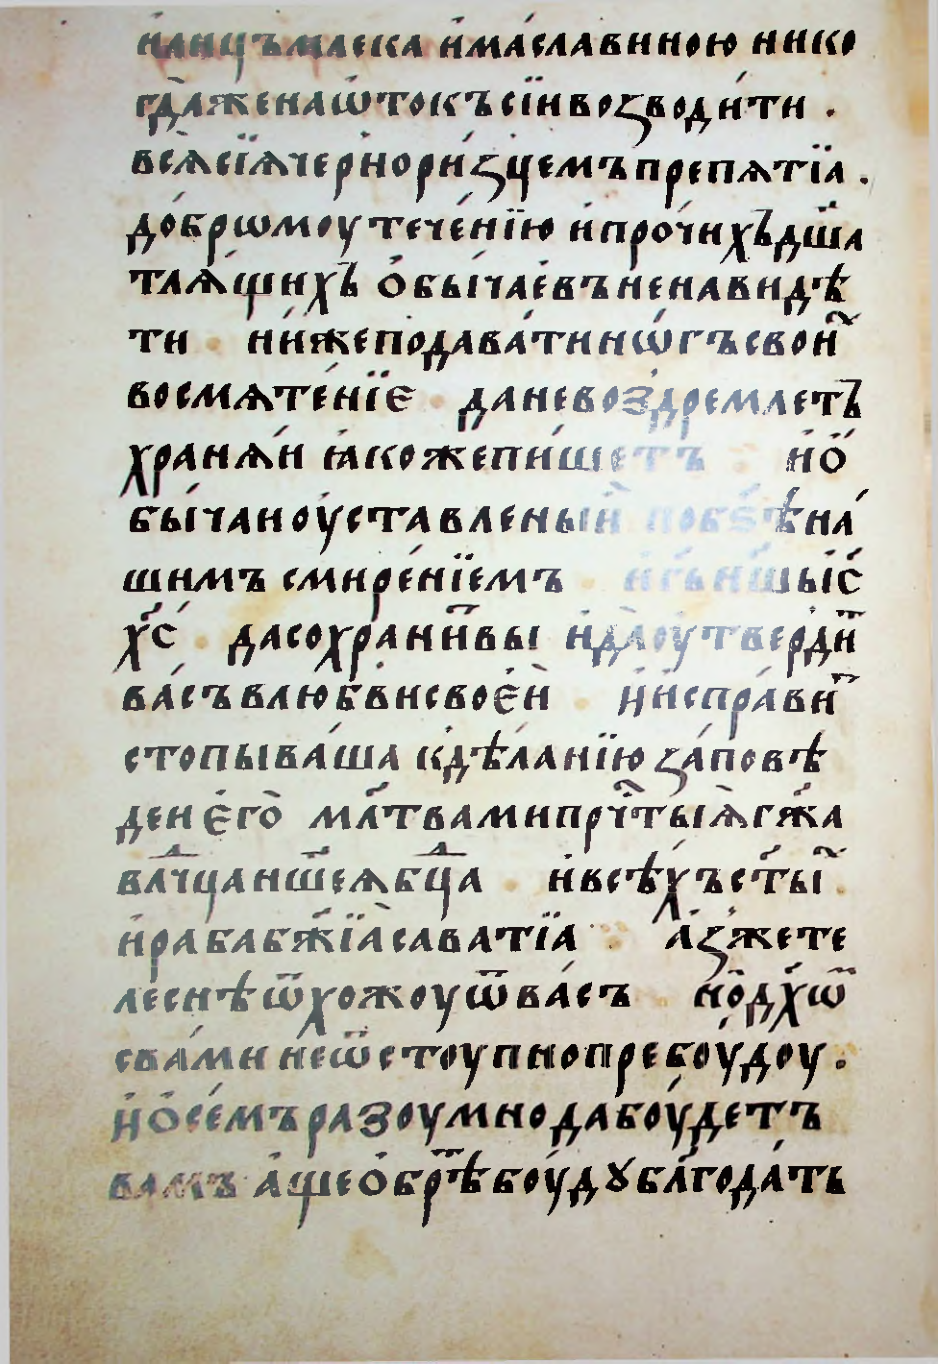 и҆лицъмлека и҆мⷭ҇лаславиною нико
гда̀женаѿтокъсїивозводи́ти .
всѧ̀сїѧ̀чернори́зцемъпрепѧтїа .
до́брѡмоу тече́нїю и҆про́чихъдш҃а
тлѧ́щихъ о҆бы́чаевъненавидѣ
ти ни́жеподава́тинѡ́гъсвои҆ⷯ
восмѧте́нїе даневоздре́млетъ
хранѧ́и ꙗ҆кожепи́шетъ и҆о҆
бы́чаноу҆ставленыи побѣ́на́
шимъ смире́нїемъ
хс҃ дасохрани́ⷮвы и҆да̀оу҆тверди́ⷮ
ва́съвлюбвисвое́и и҆и҆спра́виⷮ
стопыва́ша кдѣ́ланїю за́повѣ
деи є҆гѡ̀ мл҃твамипрⷭ҇тыѧ̀гж҃а
влⷣчцанш҃еѧбцⷣа и҆всѣ́хъст҃ыⷯ
и҆рабабж҃їѧ̀саватїа а҆́зжете
ле́снѣѿхожоуѿва́съ но̀дх҃ѡⷨ
сва́ми неѿстоупнопребоу́доу .
и҆о҆се́мъразоумнодабоу́детъ
вамъ а҆́щео҆брⷮѣбоу́дꙋбл҃года́ть